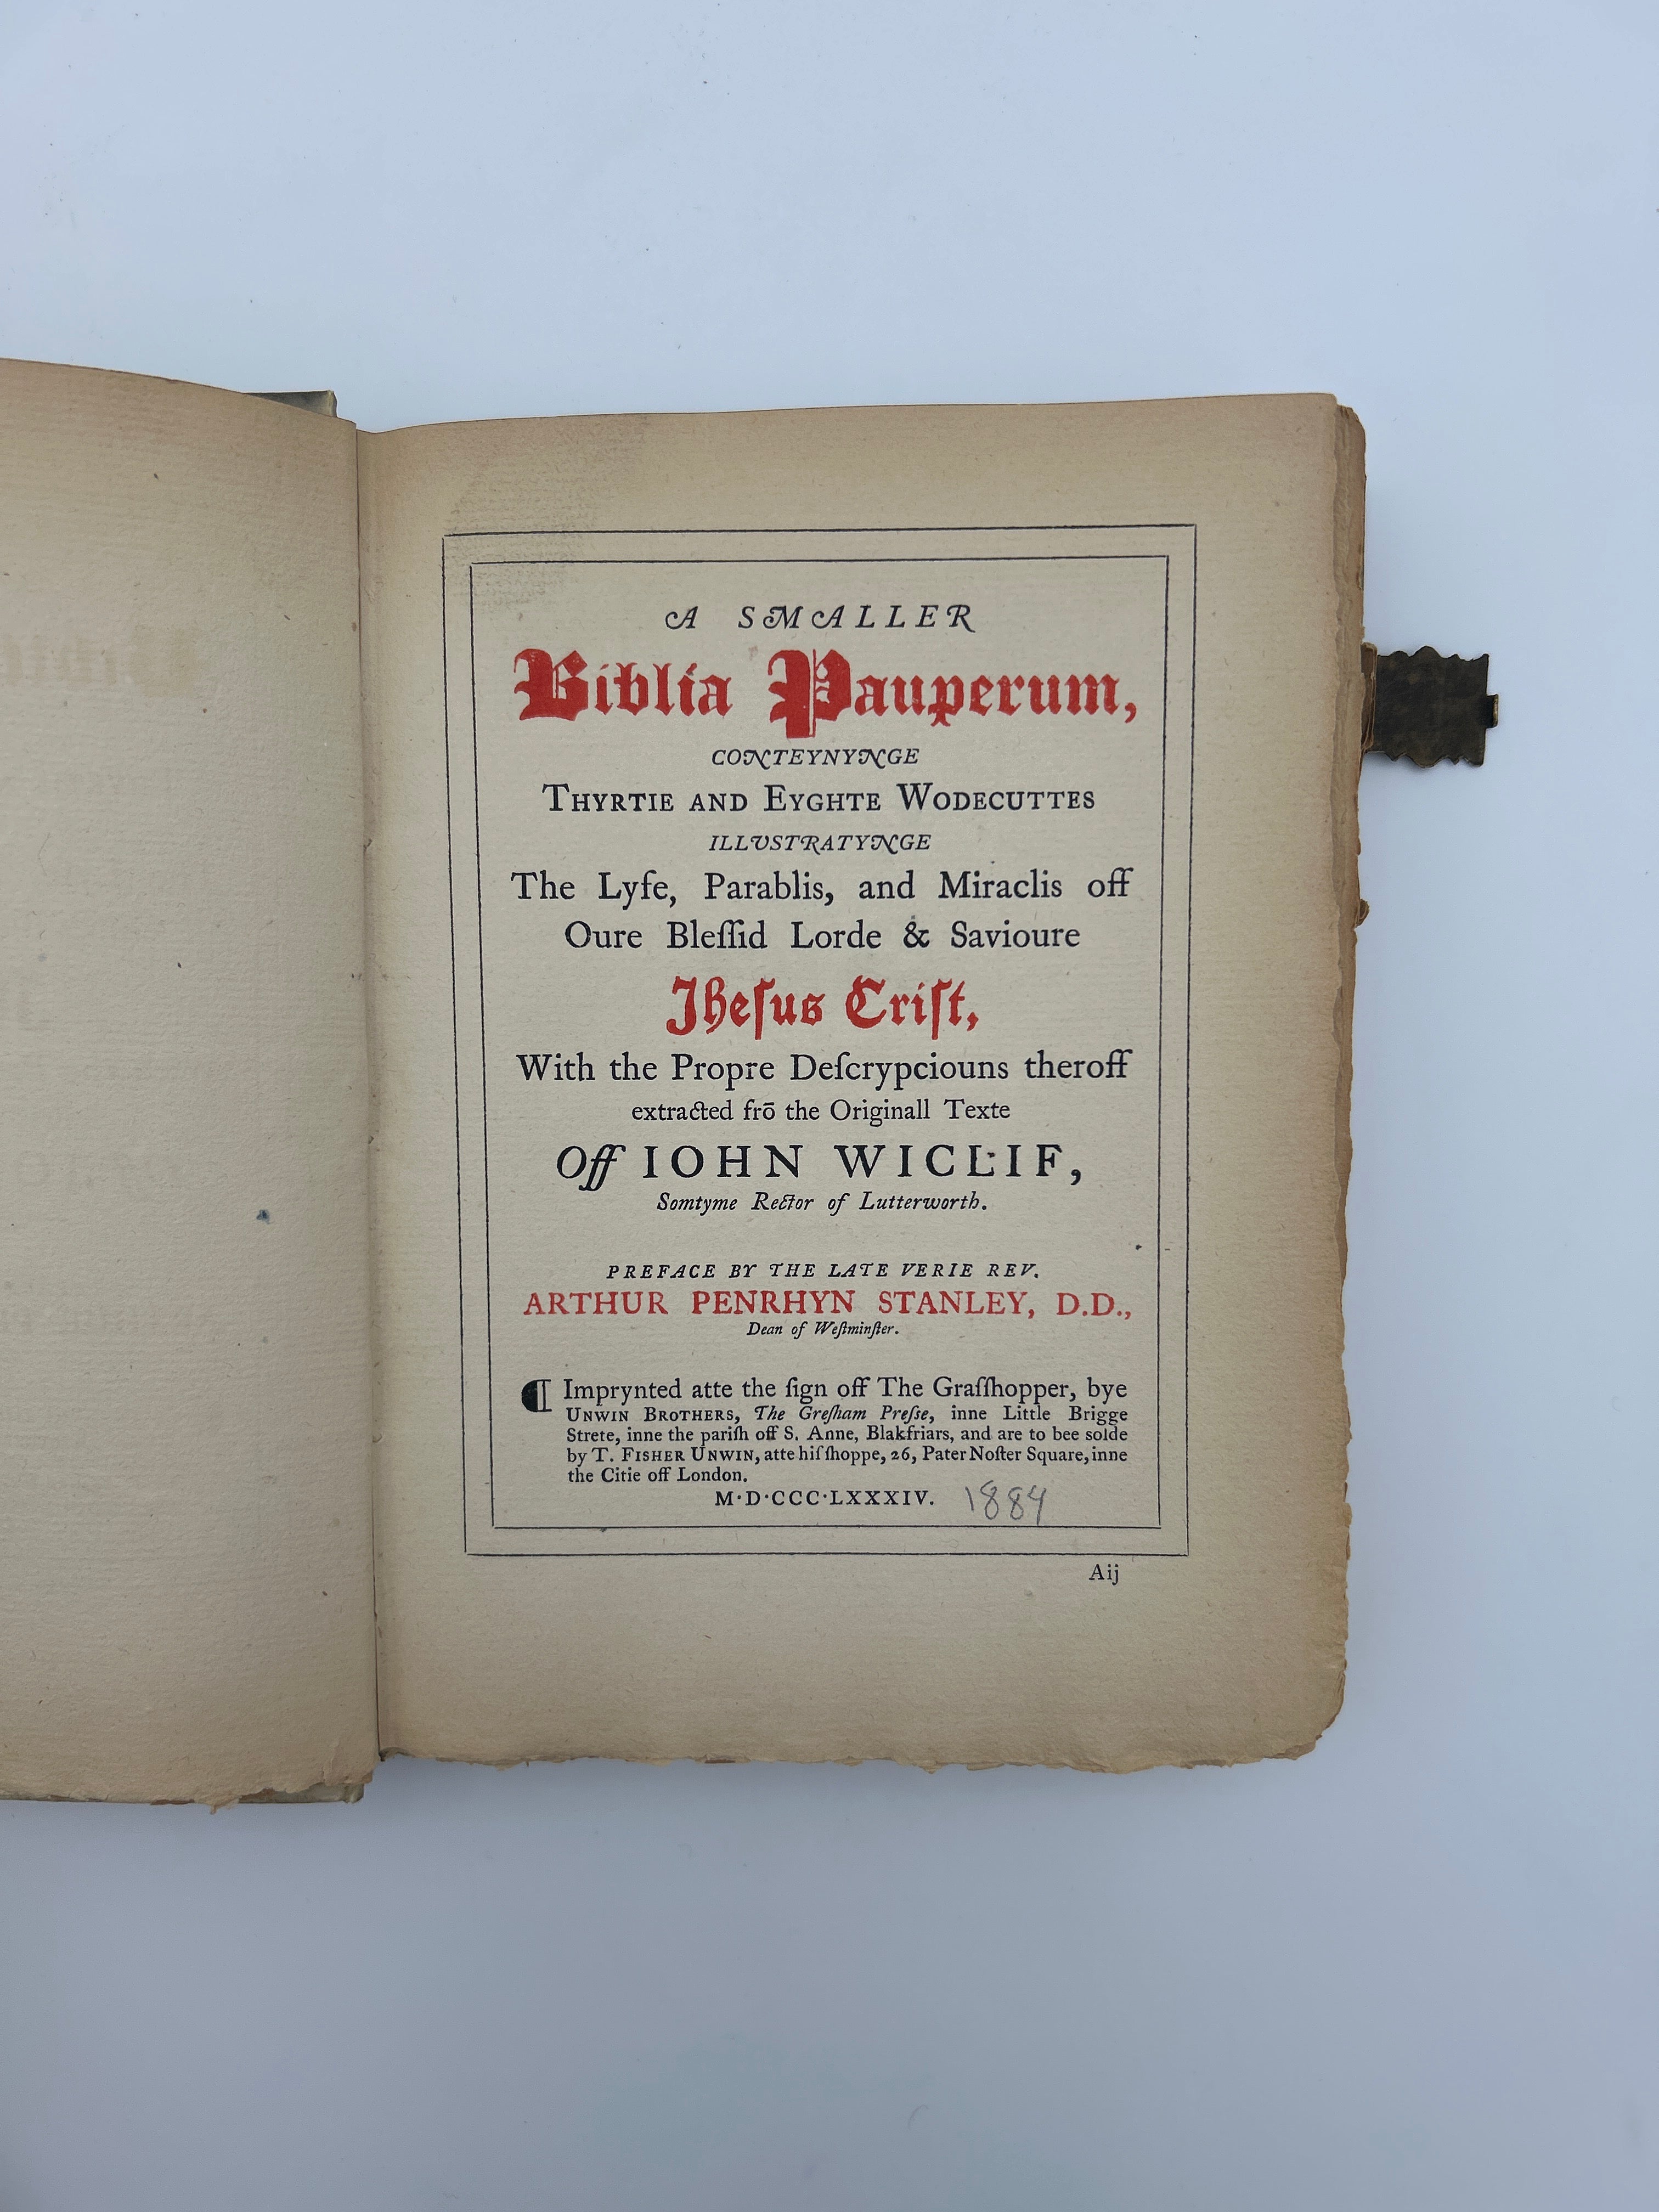 A SMALLER
Biblia Pauperum,
CONTEYNYNGE
THYRTIE AND EYGHTE WODECUTTES
ILLVSTRATYNGE
The Lyfe, Parablis, and Miraclis off
Oure Bleſſid Lorde & Savioure
Jheſus Criſt,
With the Propre Deſcrypciouns theroff
extracted frō the Originall Texte
Off IOHN WICLIF,
Somtyme Rector of Lutterworth.
PREFACE BY THE LATE VERIE REV.
ARTHUR PENRHYN STANLEY, D.D.,
Dean of Weſtminſter.
¶ Imprynted atte the ſign off The Graſſhopper, bye
UNWIN BROTHERS, The Greſham Preſſe, inne Little Brigge
Strete, inne the pariſh off S. Anne, Blakfriars, and are to bee solde
by T. FISHER UNWIN, atte hiſ ſhoppe, 26, Pater Noſter Square, inne
the Citie off London.
M·D·CCC·LXXXIV. 1884
Aij